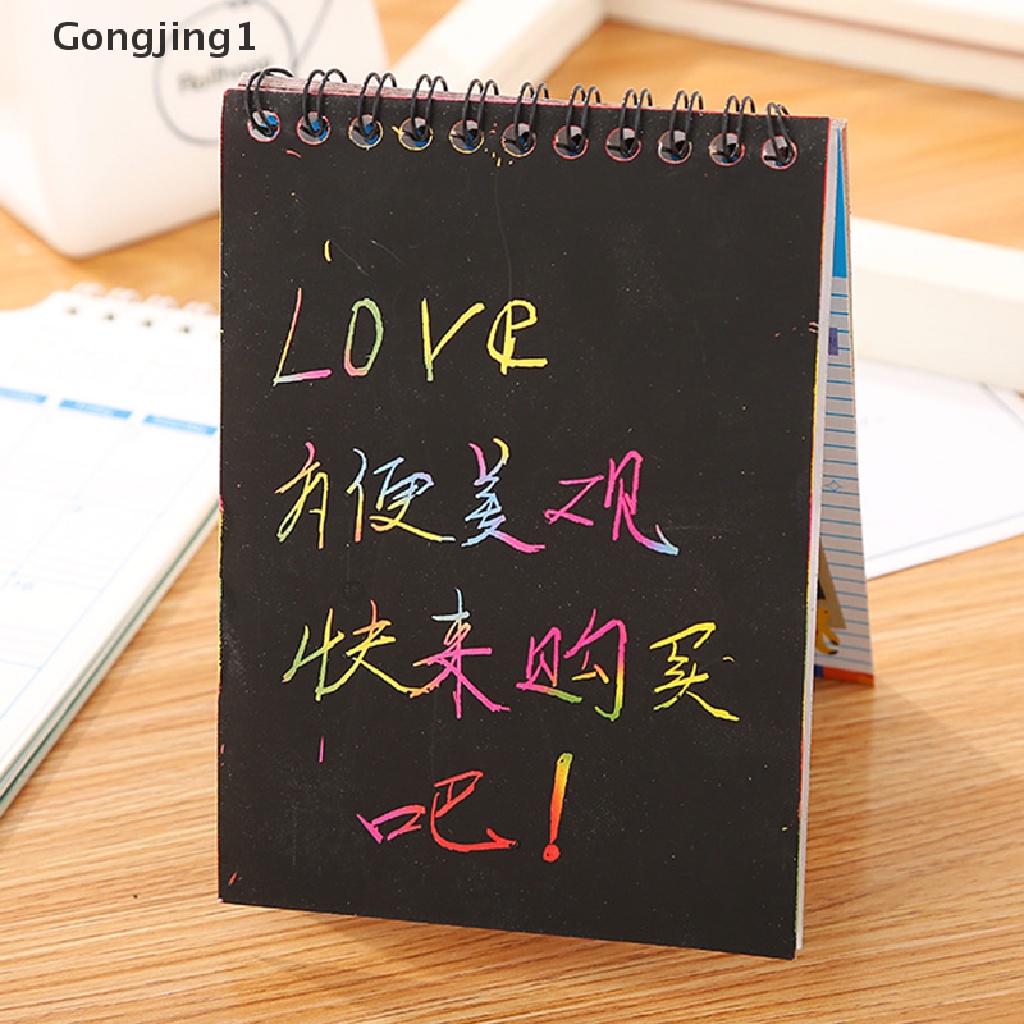 Gongjing1
LOVe
方便美观
快来购买
吧！